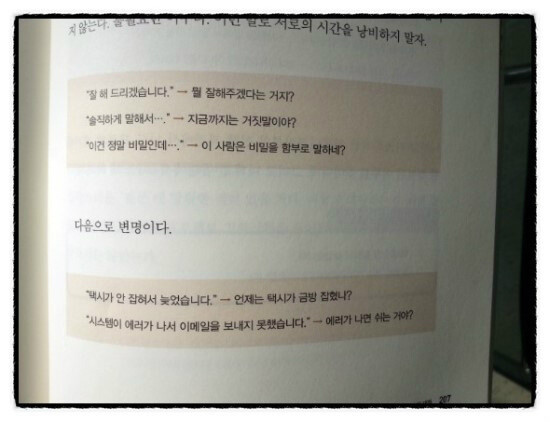 지 않는다. 불필요한 이런 말로 서로의 시간을 낭비하지 말자.
“잘 해 드리겠습니다.” → 뭘 잘해주겠다는 거지?
“솔직하게 말해서….” → 지금까지는 거짓말이야?
“이건 정말 비밀인데….” → 이 사람은 비밀을 함부로 말하네?
다음으로 변명이다.
“택시가 안 잡혀서 늦었습니다.” → 언제는 택시가 금방 잡혔나?
“시스템이 에러가 나서 이메일을 보내지 못했습니다.” → 에러가 나면 쉬는 거야?
207